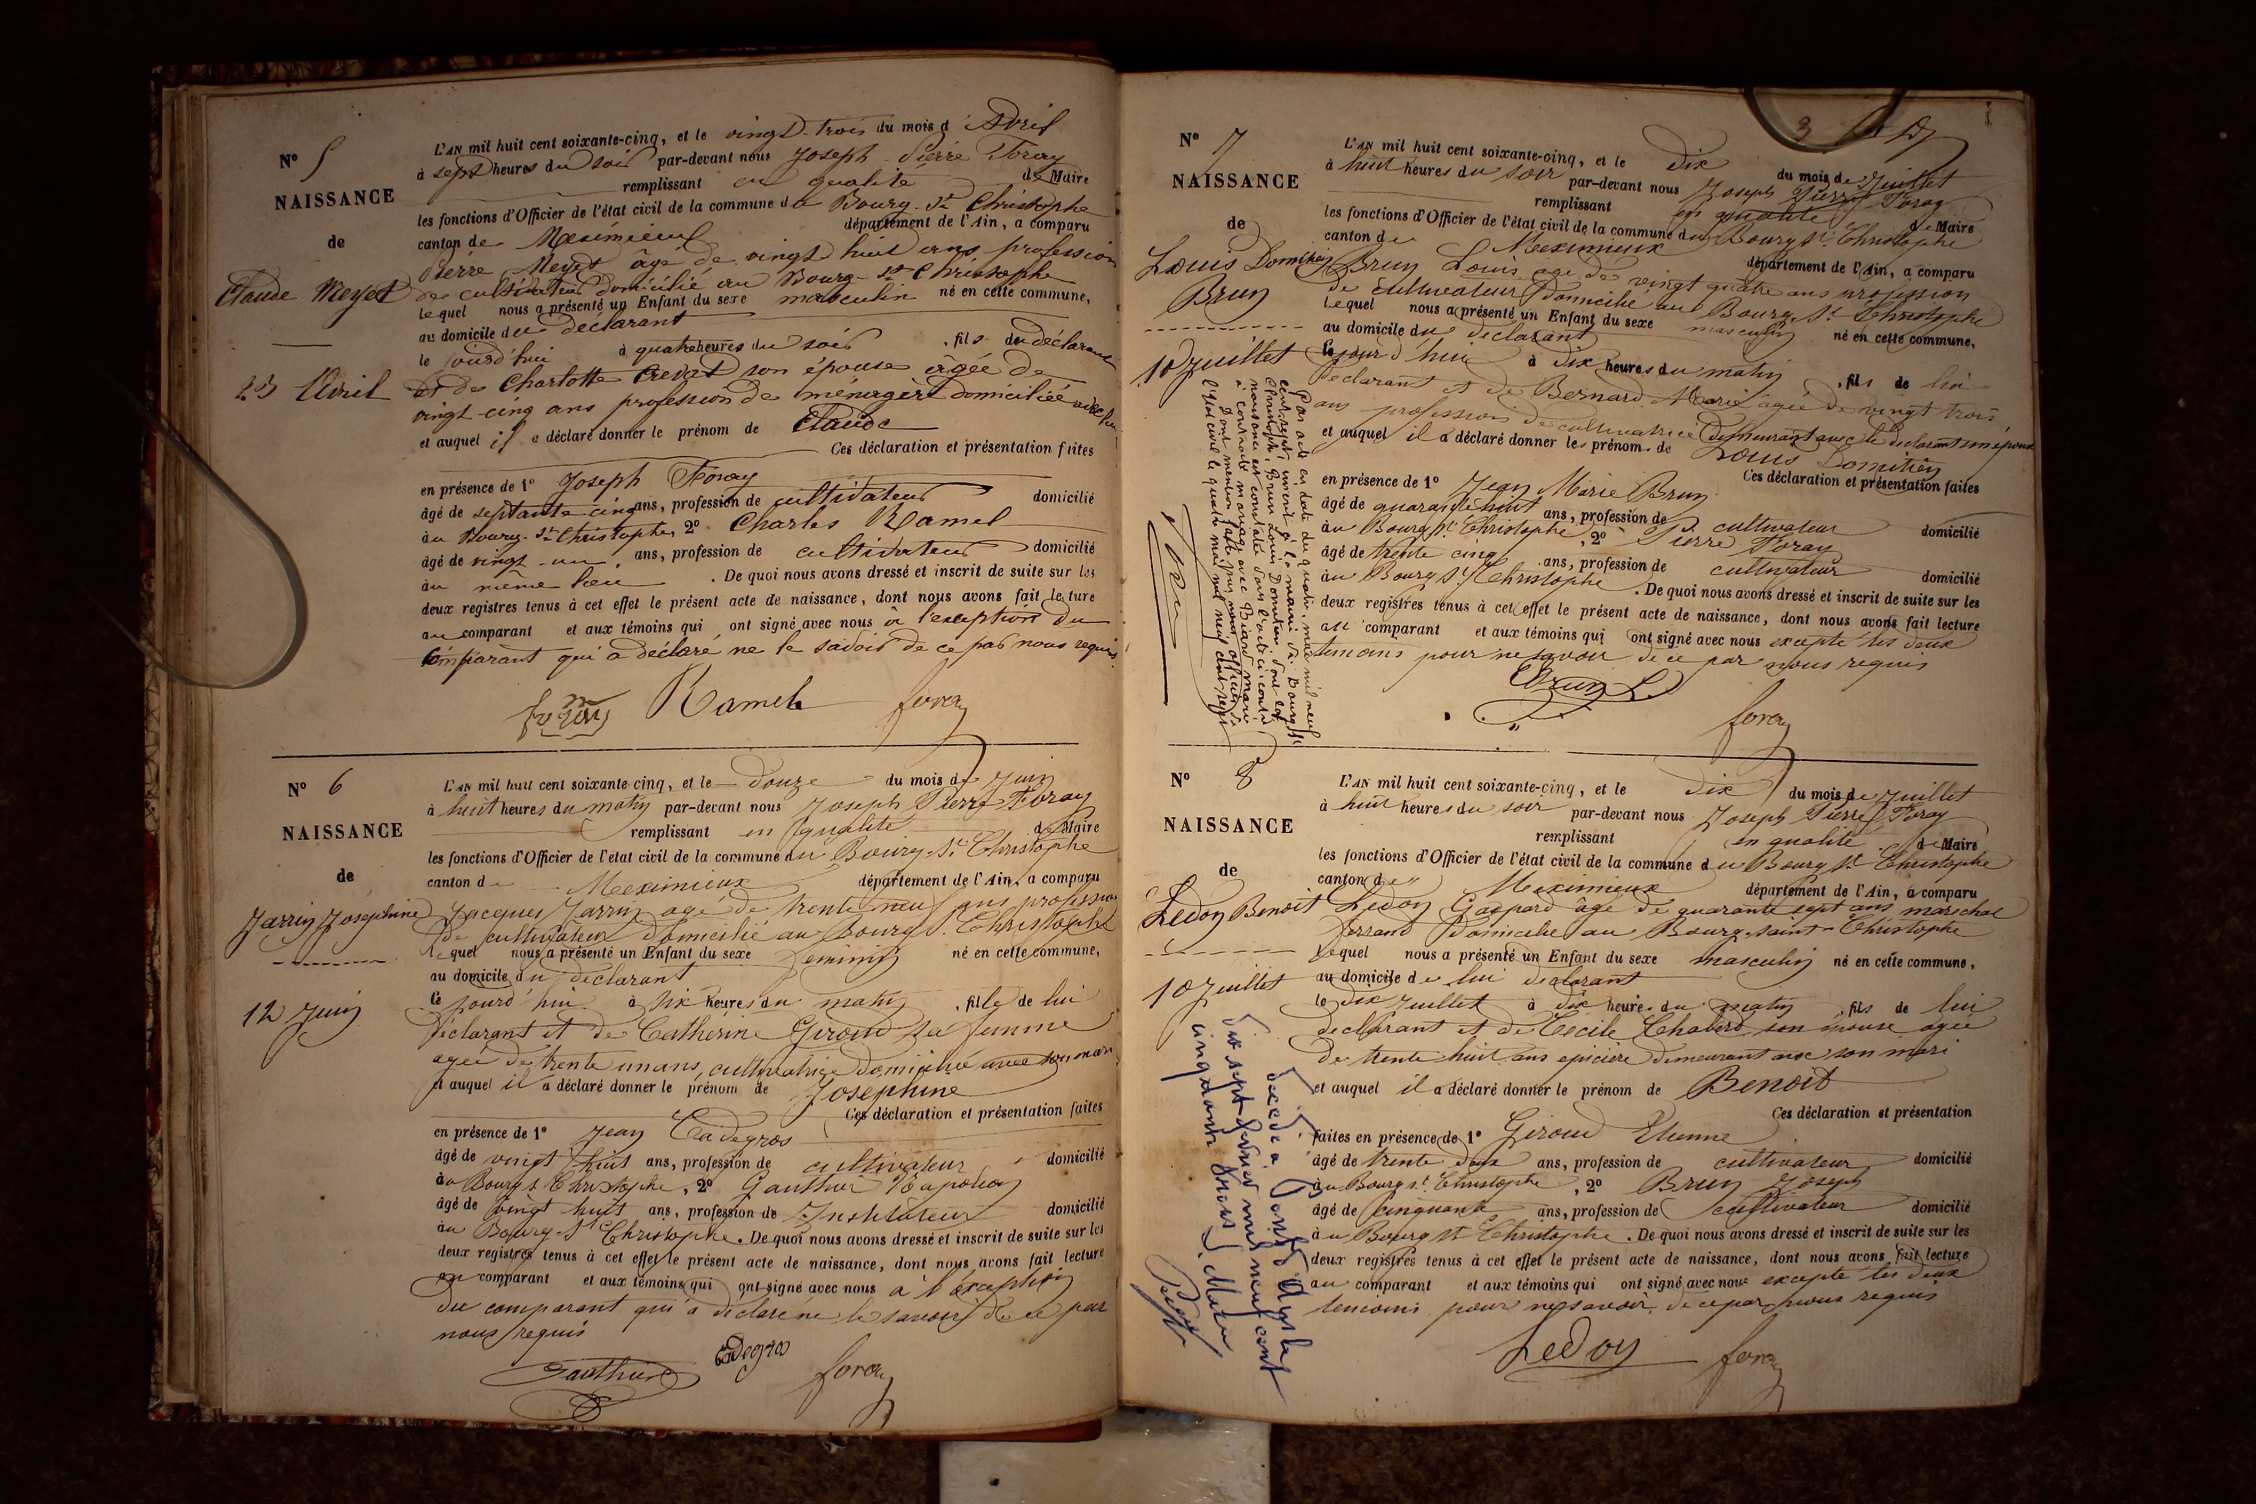 N° 5
NAISSANCE
de
Claude Meyet
23 Avril
L'AN mil huit cent soixante-cinq, et le vingt-trois du mois d'Avril
à sept heures du soir par-devant nous Joseph Pierre Foray
remplissant en qualité de Maire
les fonctions d'Officier de l'état civil de la commune du Bourg-St Christophe
canton de Meximieux département de l'Ain, a comparu
Pierre Meyet âgé de vingt huit ans profession
de cultivateur domicilié au Bourg-St Christophe
lequel nous a présenté un Enfant du sexe masculin né en cette commune,
au domicile du déclarant
le jourd'hui à quatre heures du soir, fils du déclarant
et de Charlotte Crevat son épouse âgée de
vingt-cinq ans profession de ménagère domiciliée avec lui
et auquel il a déclaré donner le prénom de Claude
Ces déclaration et présentation faites
en présence de 1° Joseph Foray
âgé de septante cinq ans, profession de cultivateur domicilié
au Bourg-St Christophe, 2° Charles Ramel
âgé de vingt-un ans, profession de cultivateur domicilié
au même lieu. De quoi nous avons dressé et inscrit de suite sur les
deux registres tenus à cet effet le présent acte de naissance, dont nous avons fait lecture
au comparant et aux témoins qui ont signé avec nous à l'exception du
comparant qui a déclaré ne le savoir de ce par nous requis
foray Ramel foray
N° 6
NAISSANCE
de
Jarrin Josephine
12 Juin
L'AN mil huit cent soixante-cinq, et le douze du mois de Juin
à huit heures du matin par-devant nous Joseph Pierre Foray
remplissant en qualité de Maire
les fonctions d'Officier de l'état civil de la commune du Bourg-St Christophe
canton de Meximieux département de l'Ain, a comparu
Jacques Jarrin agé de trente neuf ans profession
de cultivateur domicilié au Bourg St Christophe
lequel nous a présenté un Enfant du sexe feminin né en cette commune,
au domicile du déclarant
le jourd'hui à six heures du matin, fille de lui
déclarant et de Catherine Giroud sa femme
agée de trente un ans, cultivatrice domiciliée avec son mari
et auquel il a déclaré donner le prénom de Josephine
Ces déclaration et présentation faites
en présence de 1° Jean Cadegros
âgé de vingt huit ans, profession de cultivateur domicilié
au Bourg St Christophe, 2° Gauthier Napoléon
âgé de vingt huit ans, profession de Instituteur domicilié
au Bourg-St Christophe. De quoi nous avons dressé et inscrit de suite sur les
deux registres tenus à cet effet le présent acte de naissance, dont nous avons fait lecture
au comparant et aux témoins qui ont signé avec nous à l'exception
du comparant qui a déclaré ne le savoir de ce par
nous requis
Gauthier Cadegros foray
3
N° 7
NAISSANCE
de
Louis Domitien
Brun
10 Juillet
L'AN mil huit cent soixante-cinq, et le dix du mois de Juillet
à huit heures du soir par-devant nous Joseph Pierre Foray
remplissant en qualité de Maire
les fonctions d'Officier de l'état civil de la commune du Bourg St Christophe
canton de Meximieux département de l'Ain, a comparu
Brun Louis agé de vingt quatre ans profession
de cultivateur domicilié au Bourg St Christophe
lequel nous a présenté un Enfant du sexe masculin né en cette commune,
au domicile du déclarant
le jour d'hui à dix heures du matin, fils de lui
déclarant et de Bernard Marie agée de vingt trois
ans profession de cultivatrice demeurant avec le déclarant son époux
et auquel il a déclaré donner les prénom de Louis Domitien
Ces déclaration et présentation faites
en présence de 1° Jean Marie Brun
âgé de quarante huit ans, profession de cultivateur domicilié
au Bourg St Christophe, 2° Pierre Foray
âgé de trente cinq ans, profession de cultivateur domicilié
au Bourg St Christophe. De quoi nous avons dressé et inscrit de suite sur les
deux registres tenus à cet effet le présent acte de naissance, dont nous avons fait lecture
au comparant et aux témoins qui ont signé avec nous excepté les deux
temoins pour ne savoir de ce par nous requis
Brun L. foray
Par acte en date du quatre mai mil neuf
cent sept, inscrit à la mairie de Bourg St
Christophe, Brun Louis Domitien dont la
naissance est constatée dans l'acte ci-contre,
a contracté mariage avec Biard Marie
Dont mention faite par nous officier de
l'état civil le quatre mai mil neuf cent sept
N° 8
NAISSANCE
de
Ledoy Benoit
10 Juillet
L'AN mil huit cent soixante-cinq, et le dix du mois de Juillet
à huit heures du soir par-devant nous Joseph Pierre Foray
remplissant en qualité de Maire
les fonctions d'Officier de l'état civil de la commune du Bourg St Christophe
canton de Meximieux département de l'Ain, a comparu
Ledoy Gaspard âgé de quarante sept ans marechal
ferrand domicilié au Bourg-saint-Christophe
lequel nous a présenté un Enfant du sexe masculin né en cette commune,
au domicile de lui déclarant
le dix Juillet à dix heures du matin, fils de lui
déclarant et de Cécile Chabert son épouse agée
de trente huit ans epicière demeurant avec son mari
et auquel il a déclaré donner le prénom de Benoit
Ces déclaration et présentation
faites en présence de 1° Giroud Etienne
âgé de trente deux ans, profession de cultivateur domicilié
au Bourg St Christophe, 2° Brun Joseph
âgé de cinquante ans, profession de cultivateur domicilié
au Bourg St Christophe. De quoi nous avons dressé et inscrit de suite sur les
deux registres tenus à cet effet le présent acte de naissance, dont nous avons fait lecture
au comparant et aux témoins qui ont signé avec nous excepté les deux
temoins pour ne savoir de ce par nous requis
Ledoy foray
Décédé à
dix sept février mil neuf cent
cinquante